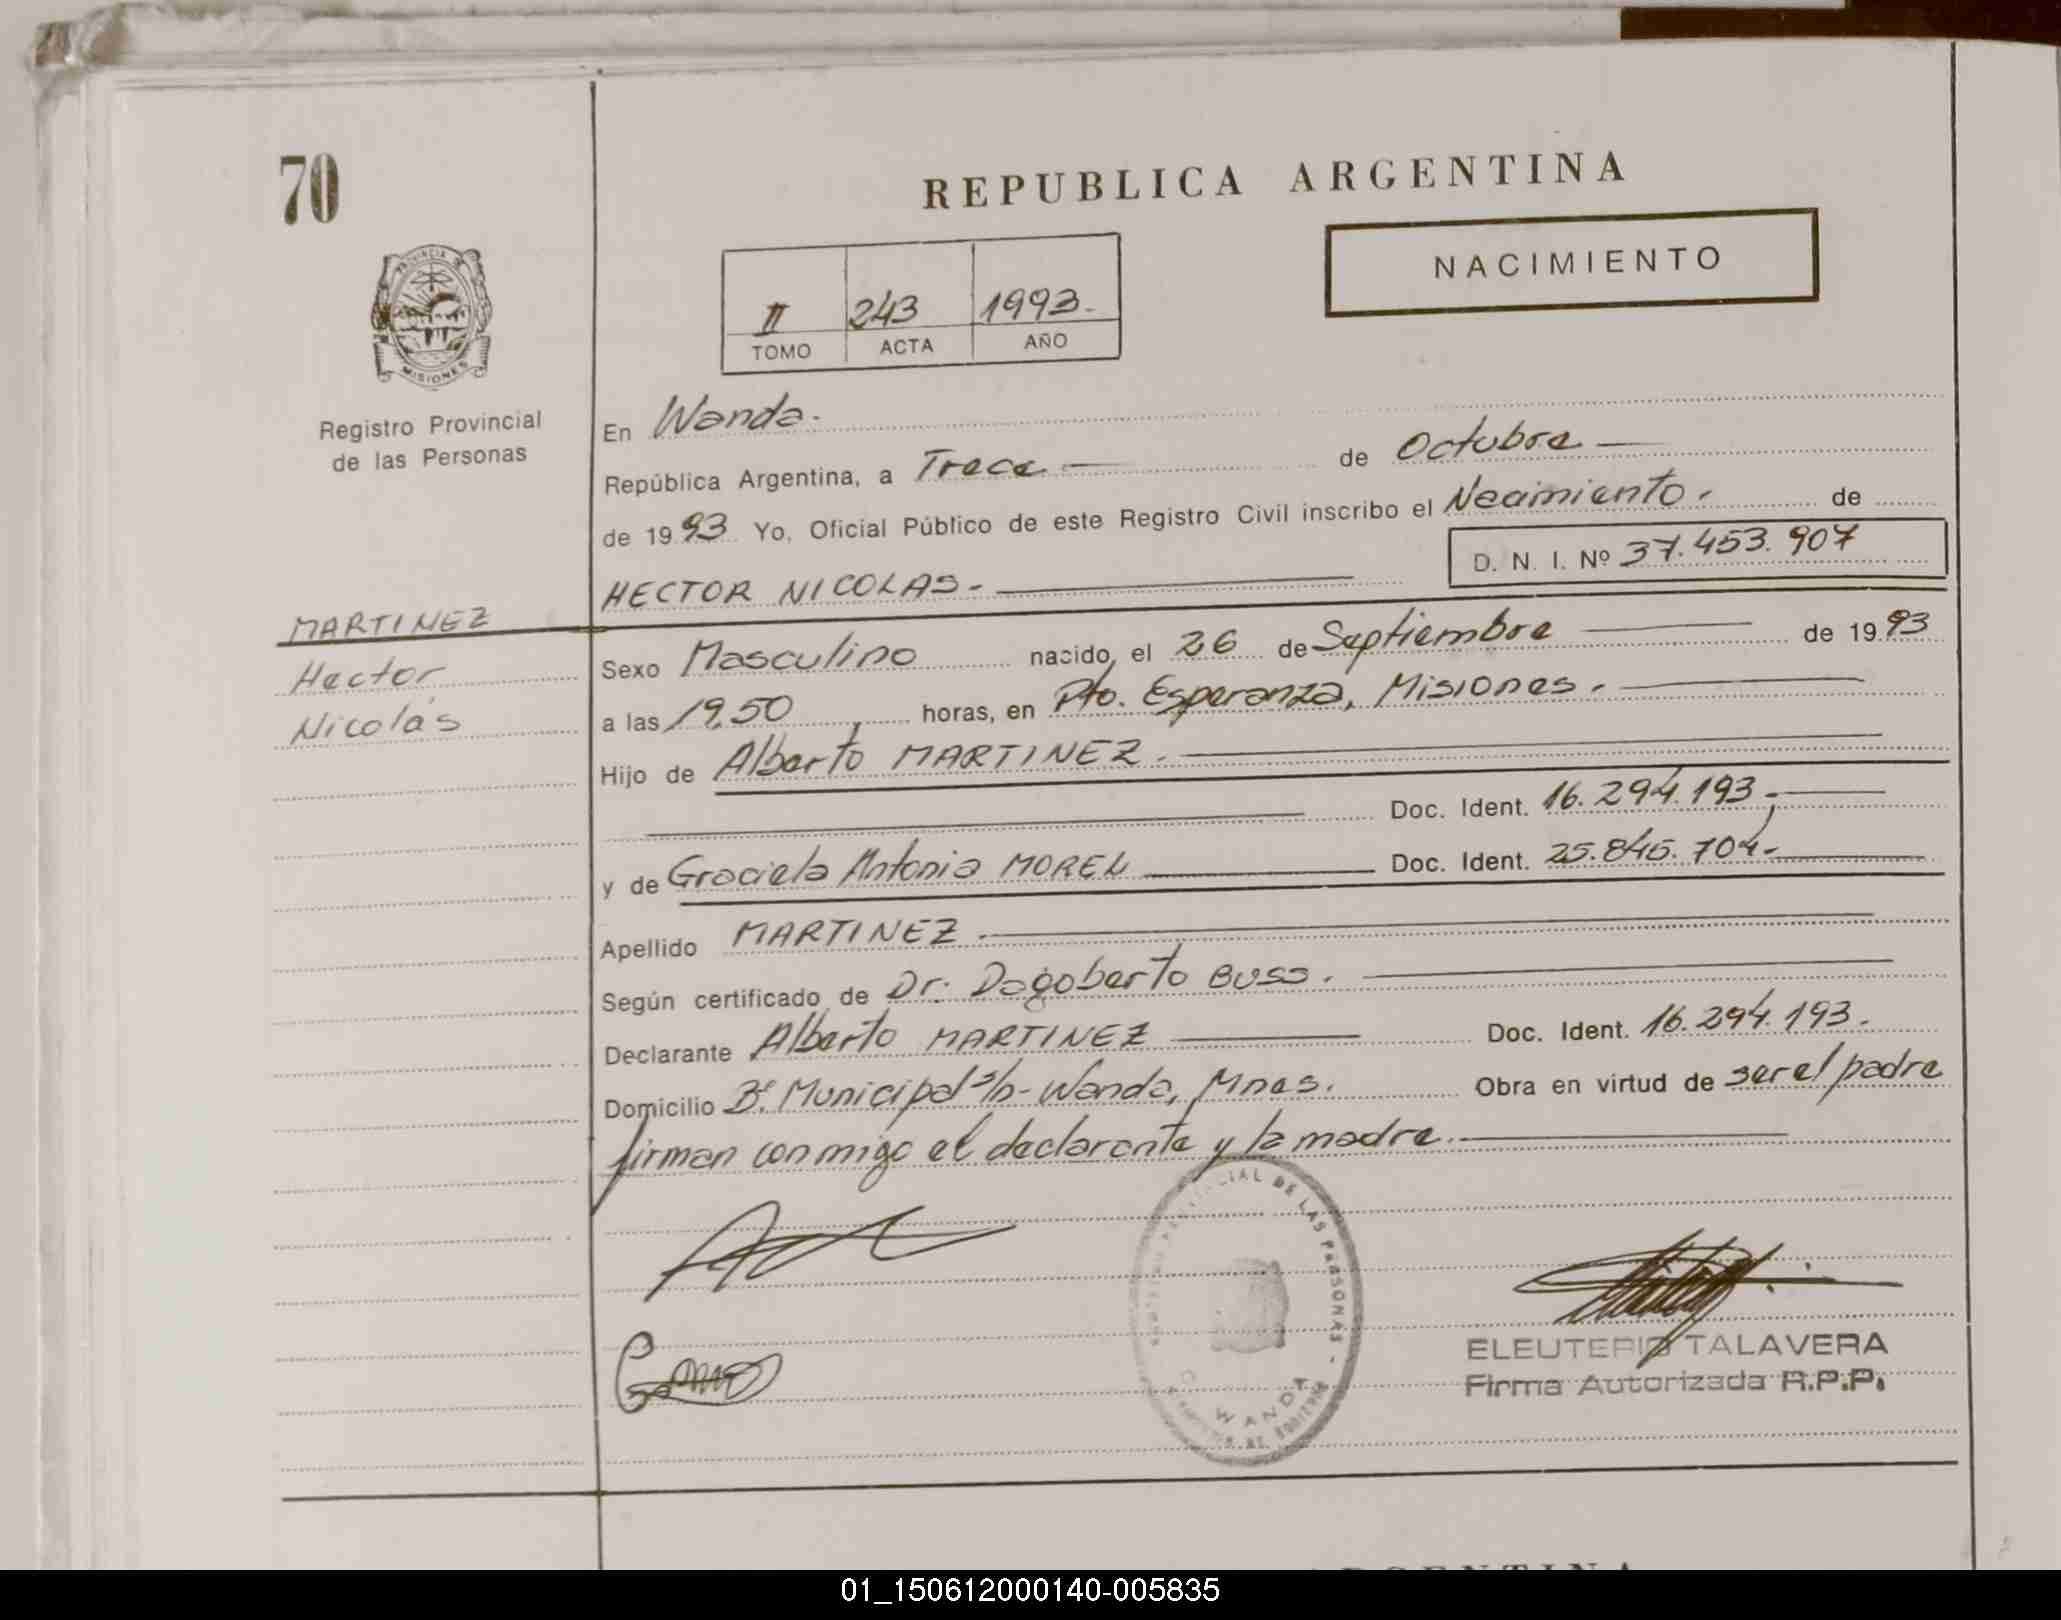 70
REPUBLICA ARGENTINA
NACIMIENTO
II 243 1993.-
TOMO ACTA AÑO
PROVINCIA DE
MISIONES
Registro Provincial
de las Personas
En Wanda.-
República Argentina, a Trece — de Octubre —
de 1993 Yo, Oficial Público de este Registro Civil inscribo el Nacimiento. de
D. N. I. Nº 37.453.907
HECTOR NICOLAS.-
MARTINEZ
Hector
Nicolás
Sexo Masculino nacido, el 26 de Septiembre — de 1993
a las 19,50 horas, en Pto. Esperanza, Misiones.-
Hijo de Alberto MARTINEZ.-
Doc. Ident. 16.294.193.-
y de Graciela Antonia MOREL — Doc. Ident. 25.845.704.-
Apellido MARTINEZ.-
Según certificado de Dr. Dagoberto BUSS.-
Declarante Alberto MARTINEZ — Doc. Ident. 16.294.193.-
Domicilio Bº. Municipal s/n- Wanda, Mnes. Obra en virtud de ser el padre
firman conmigo el declarante y la madre.-
DE LAS PERSONAS -
WANDA
ELEUTERIO TALAVERA
Firma Autorizada R.P.P.
01_150612000140-005835